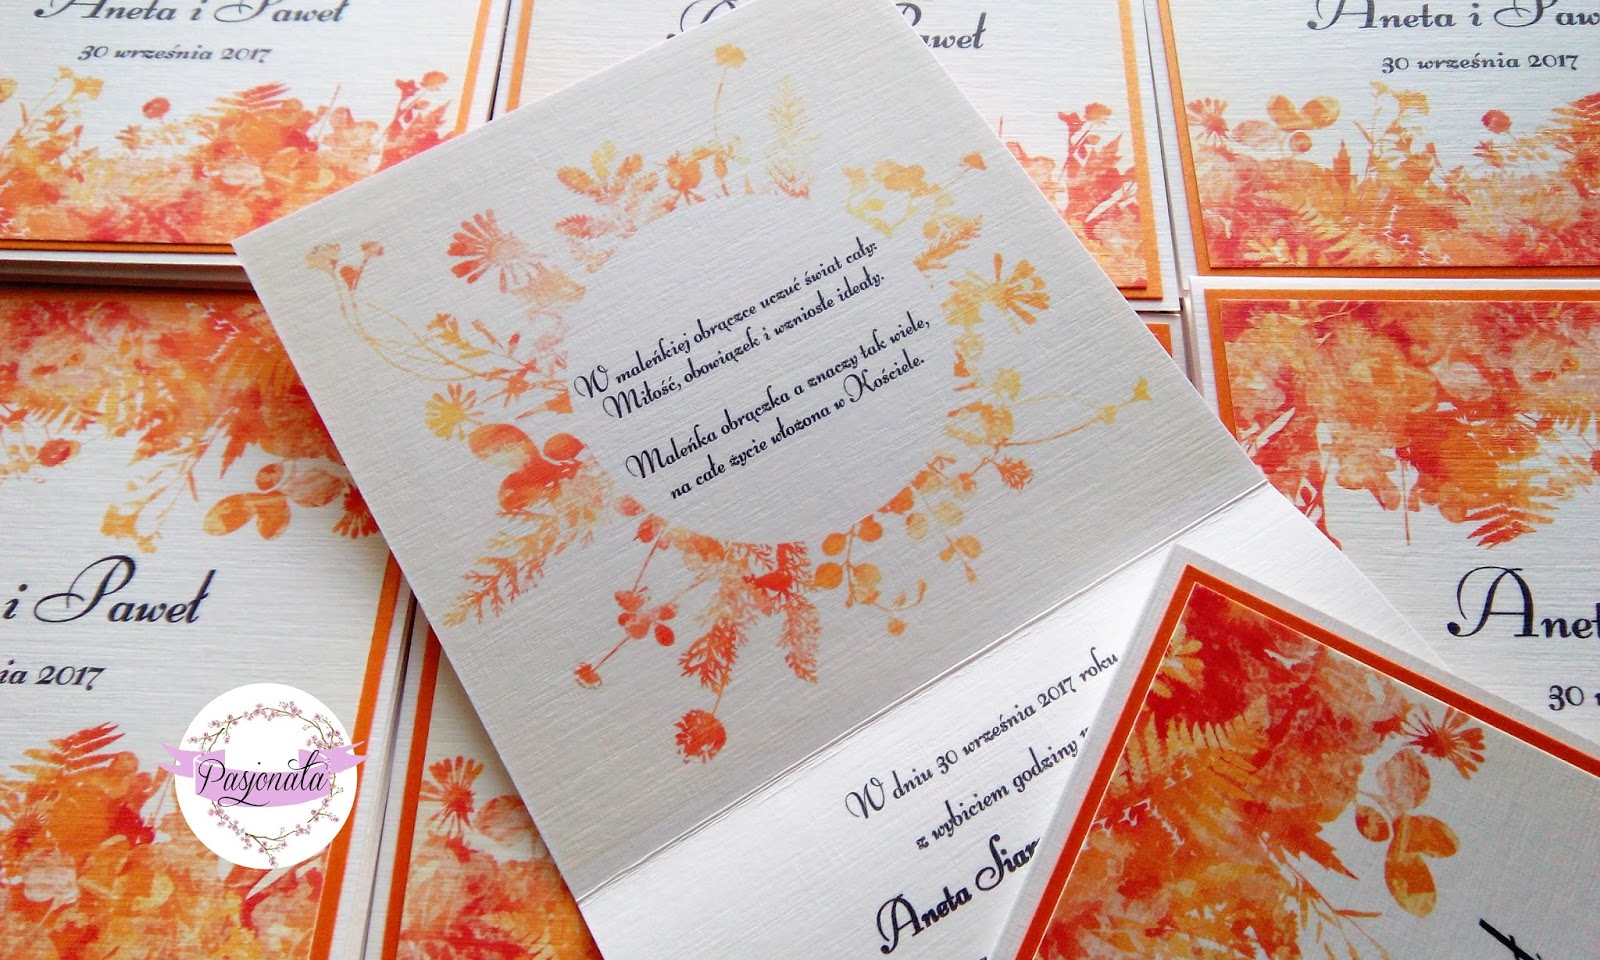 Aneta i Paweł
30 września 2017
Paweł
Aneta i
30 września 2017
W maleńkiej obrączce uczuć świat cały:
Miłość, obowiązek i wzniosłe ideały.
Maleńka obrączka a znaczy tak wiele,
na całe życie włożona w Kościele.
i Paweł
2017
30
W dniu 30 września 2017 roku
z wybiciem godziny
Aneta
Pasjonata